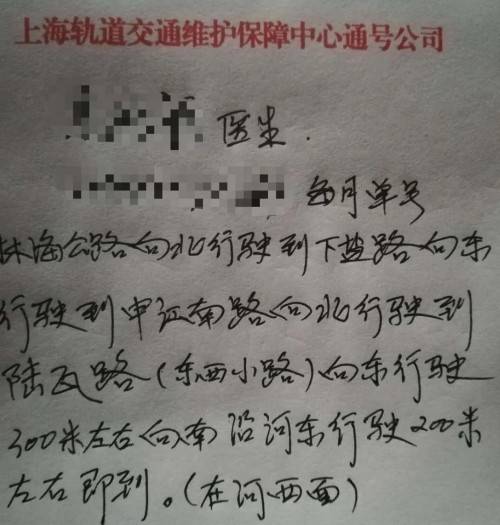 上海轨道交通维护保障中心通号公司
医生.
每月单号
林海公路向北行驶到下盐路向东
行驶到申江南路向北行驶到
陆瓦路(东西小路)向东行驶
300米左右向南沿河东行驶200米
左右即到。(在河西面)